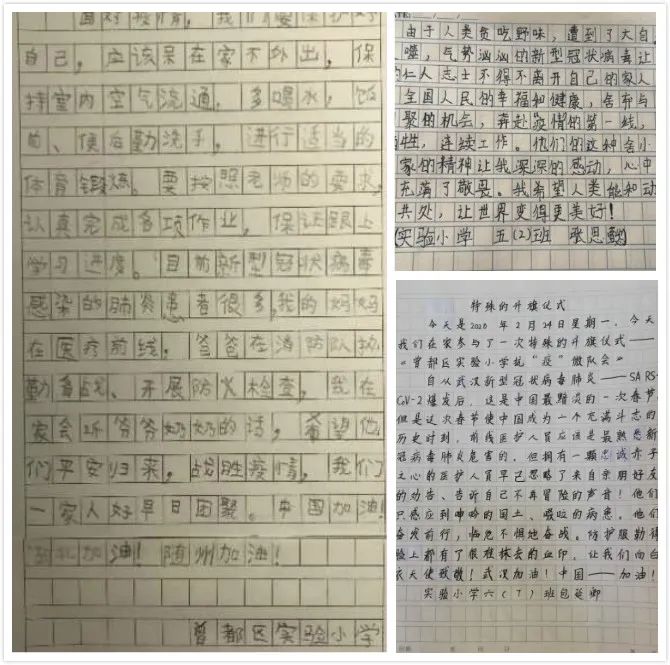 面对疫情，我们要保护好
自己，应该呆在家不外出，保
持室内空气流通，多喝水，饭
前、便后勤洗手，进行适当的
体育锻炼。要按照老师的要求，
认真完成各项作业，保证跟上
学习进度。目前新型冠状病毒
感染的肺炎患者很多，我的妈妈
在医疗前线，爸爸在消防队执
勤备战、开展防火检查，我在
家会听爷爷奶奶的话，希望他
们平安归来，战胜疫情，我们
一家人好早日团聚。中国加油！
加油！随州加油！
曾都区实验小学
由于人类贪吃野味，遭到了大自
噬，气势汹汹的新型冠状病毒让
仁人志士不得不离开自己的家人
全国人民的幸福和健康，舍弃与
聚的机会，奔赴疫情的第一线，
牲，连续工作。他们的这种舍小
家的精神让我深深的感动，心中
充满了敬畏。我希望人类能和动
共处，让世界变得更美好！
实验小学 五(2)班 张思
特殊的升旗仪式
今天是2020年2月24日星期一，今天
我们在家参与了一次特殊的升旗仪式——
“曾都区实验小学抗“疫”微队会”
自从武汉新型冠状病毒肺炎——SARS-
CoV-2爆发后，这是中国最黯淡的一次春节
但是这次春节使中国成为一个充满斗志的
历史时刻，前线医护人员应该是最熟悉新
冠病毒肺炎危害的，但拥有一颗忠诚赤子
之心的医护人员早已忽略了来自亲朋好友
的劝告、告诉自己不再冒险的声音！他们
只感应到呻吟的国土、哽咽的病患，他们
奋发前行，临危不惧地奋战。防护服勒得
脸上都有了很难抹去的血印，让我们向白
衣天使致敬！武汉加油！中国——加油！
实验小学六(7)班包